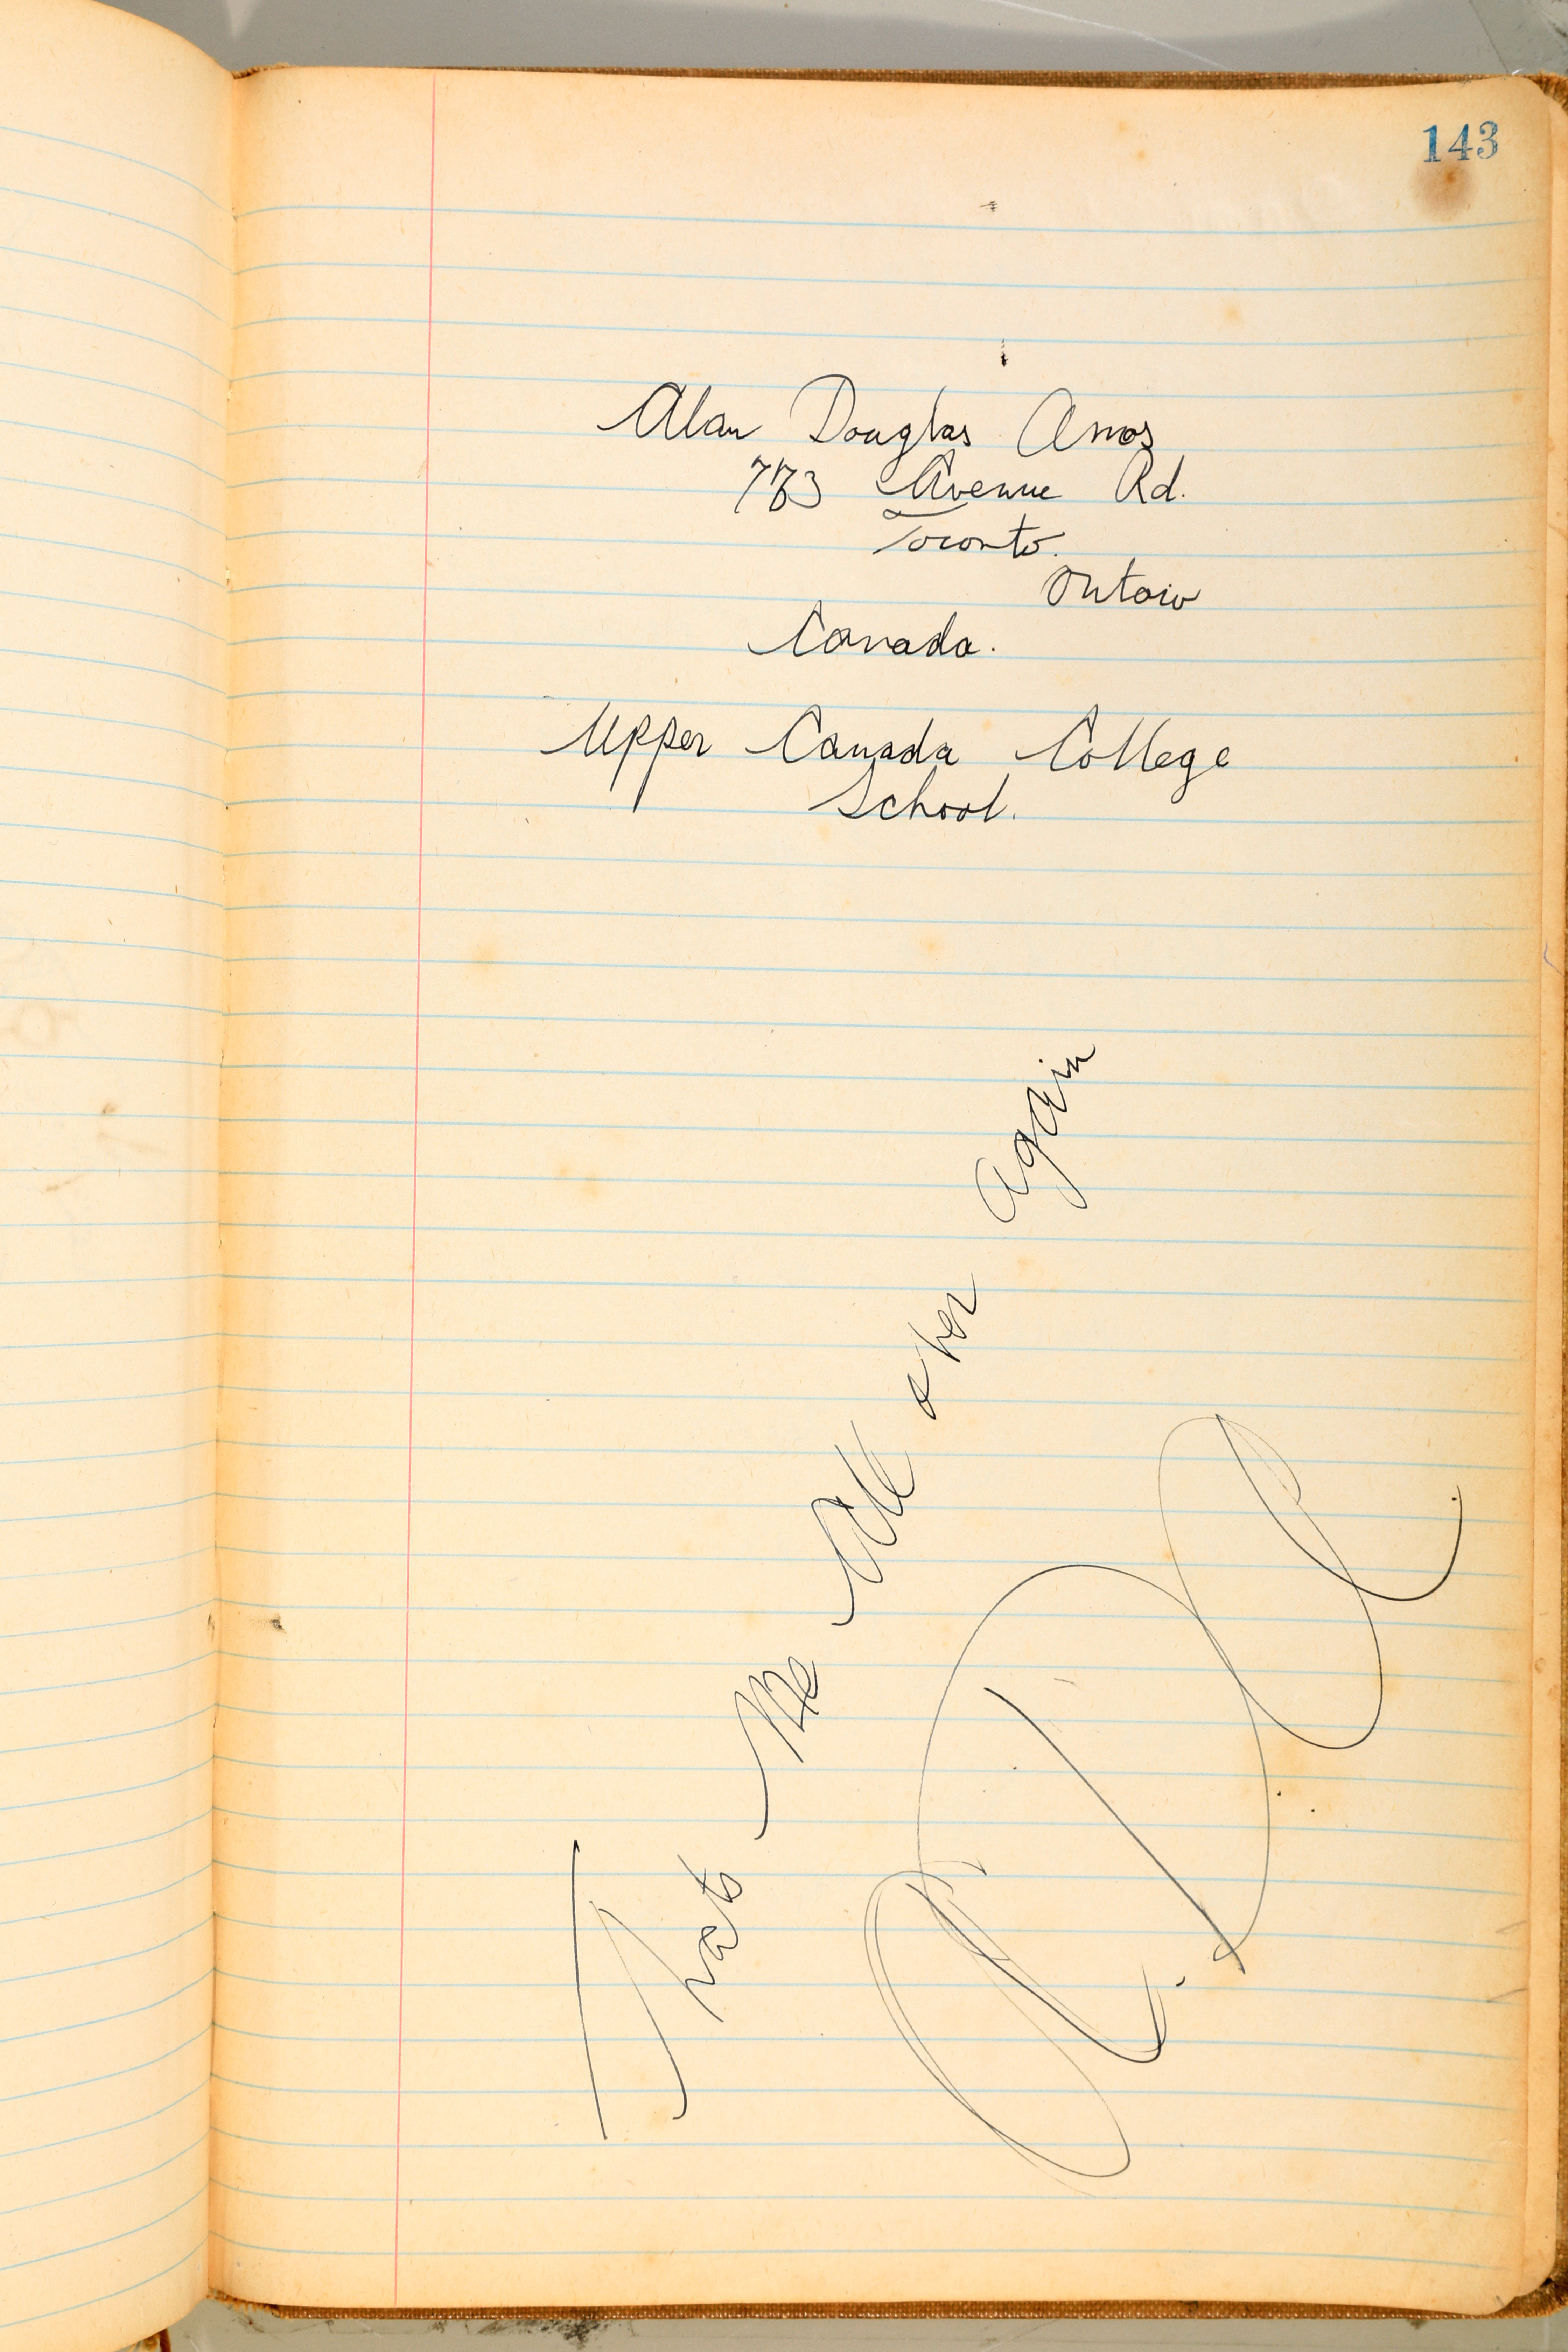 143
Alan Douglas Amos
773 Avenue Rd.
Toronto.
Ontario
Canada.
Upper Canada College
School.
Thats Me All over again